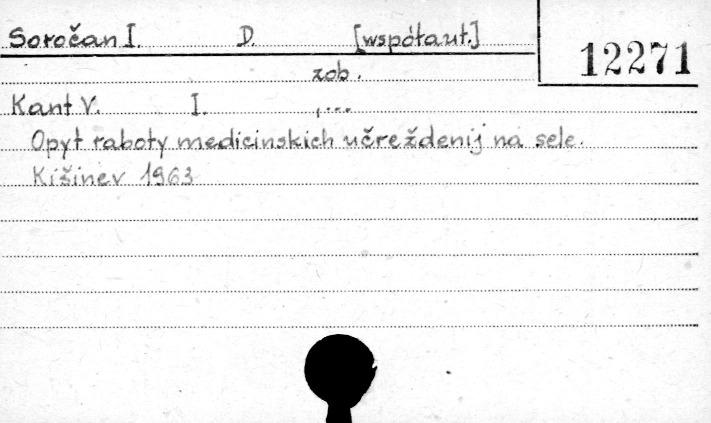 Soročan I. D. [współaut.]
12271
zob.
Kant V. I. ,...
Opyt raboty medicinskich učreždenij na sele.
Kišinev 1963